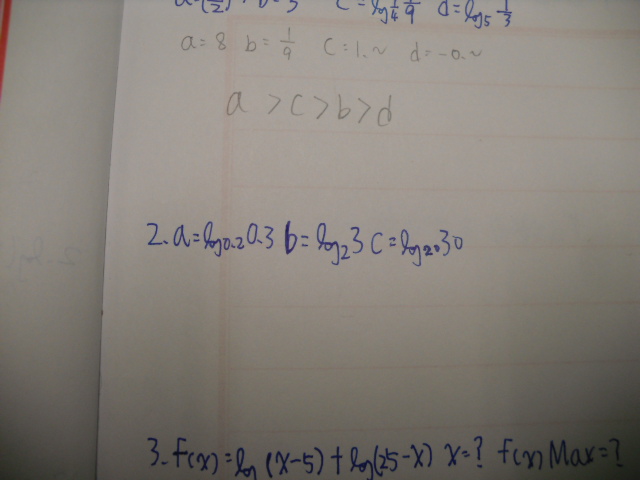 c=log¼ 1/9 d=log₅ 1/3
a=8 b=1/9 c=1.~ d=-0.~
a>c>b>d
2. a=log₀.₂0.3 b=log₂3 c=log₂₀30
3. f(x)=log(x-5)+log(25-x) x=? f(x)Max=?